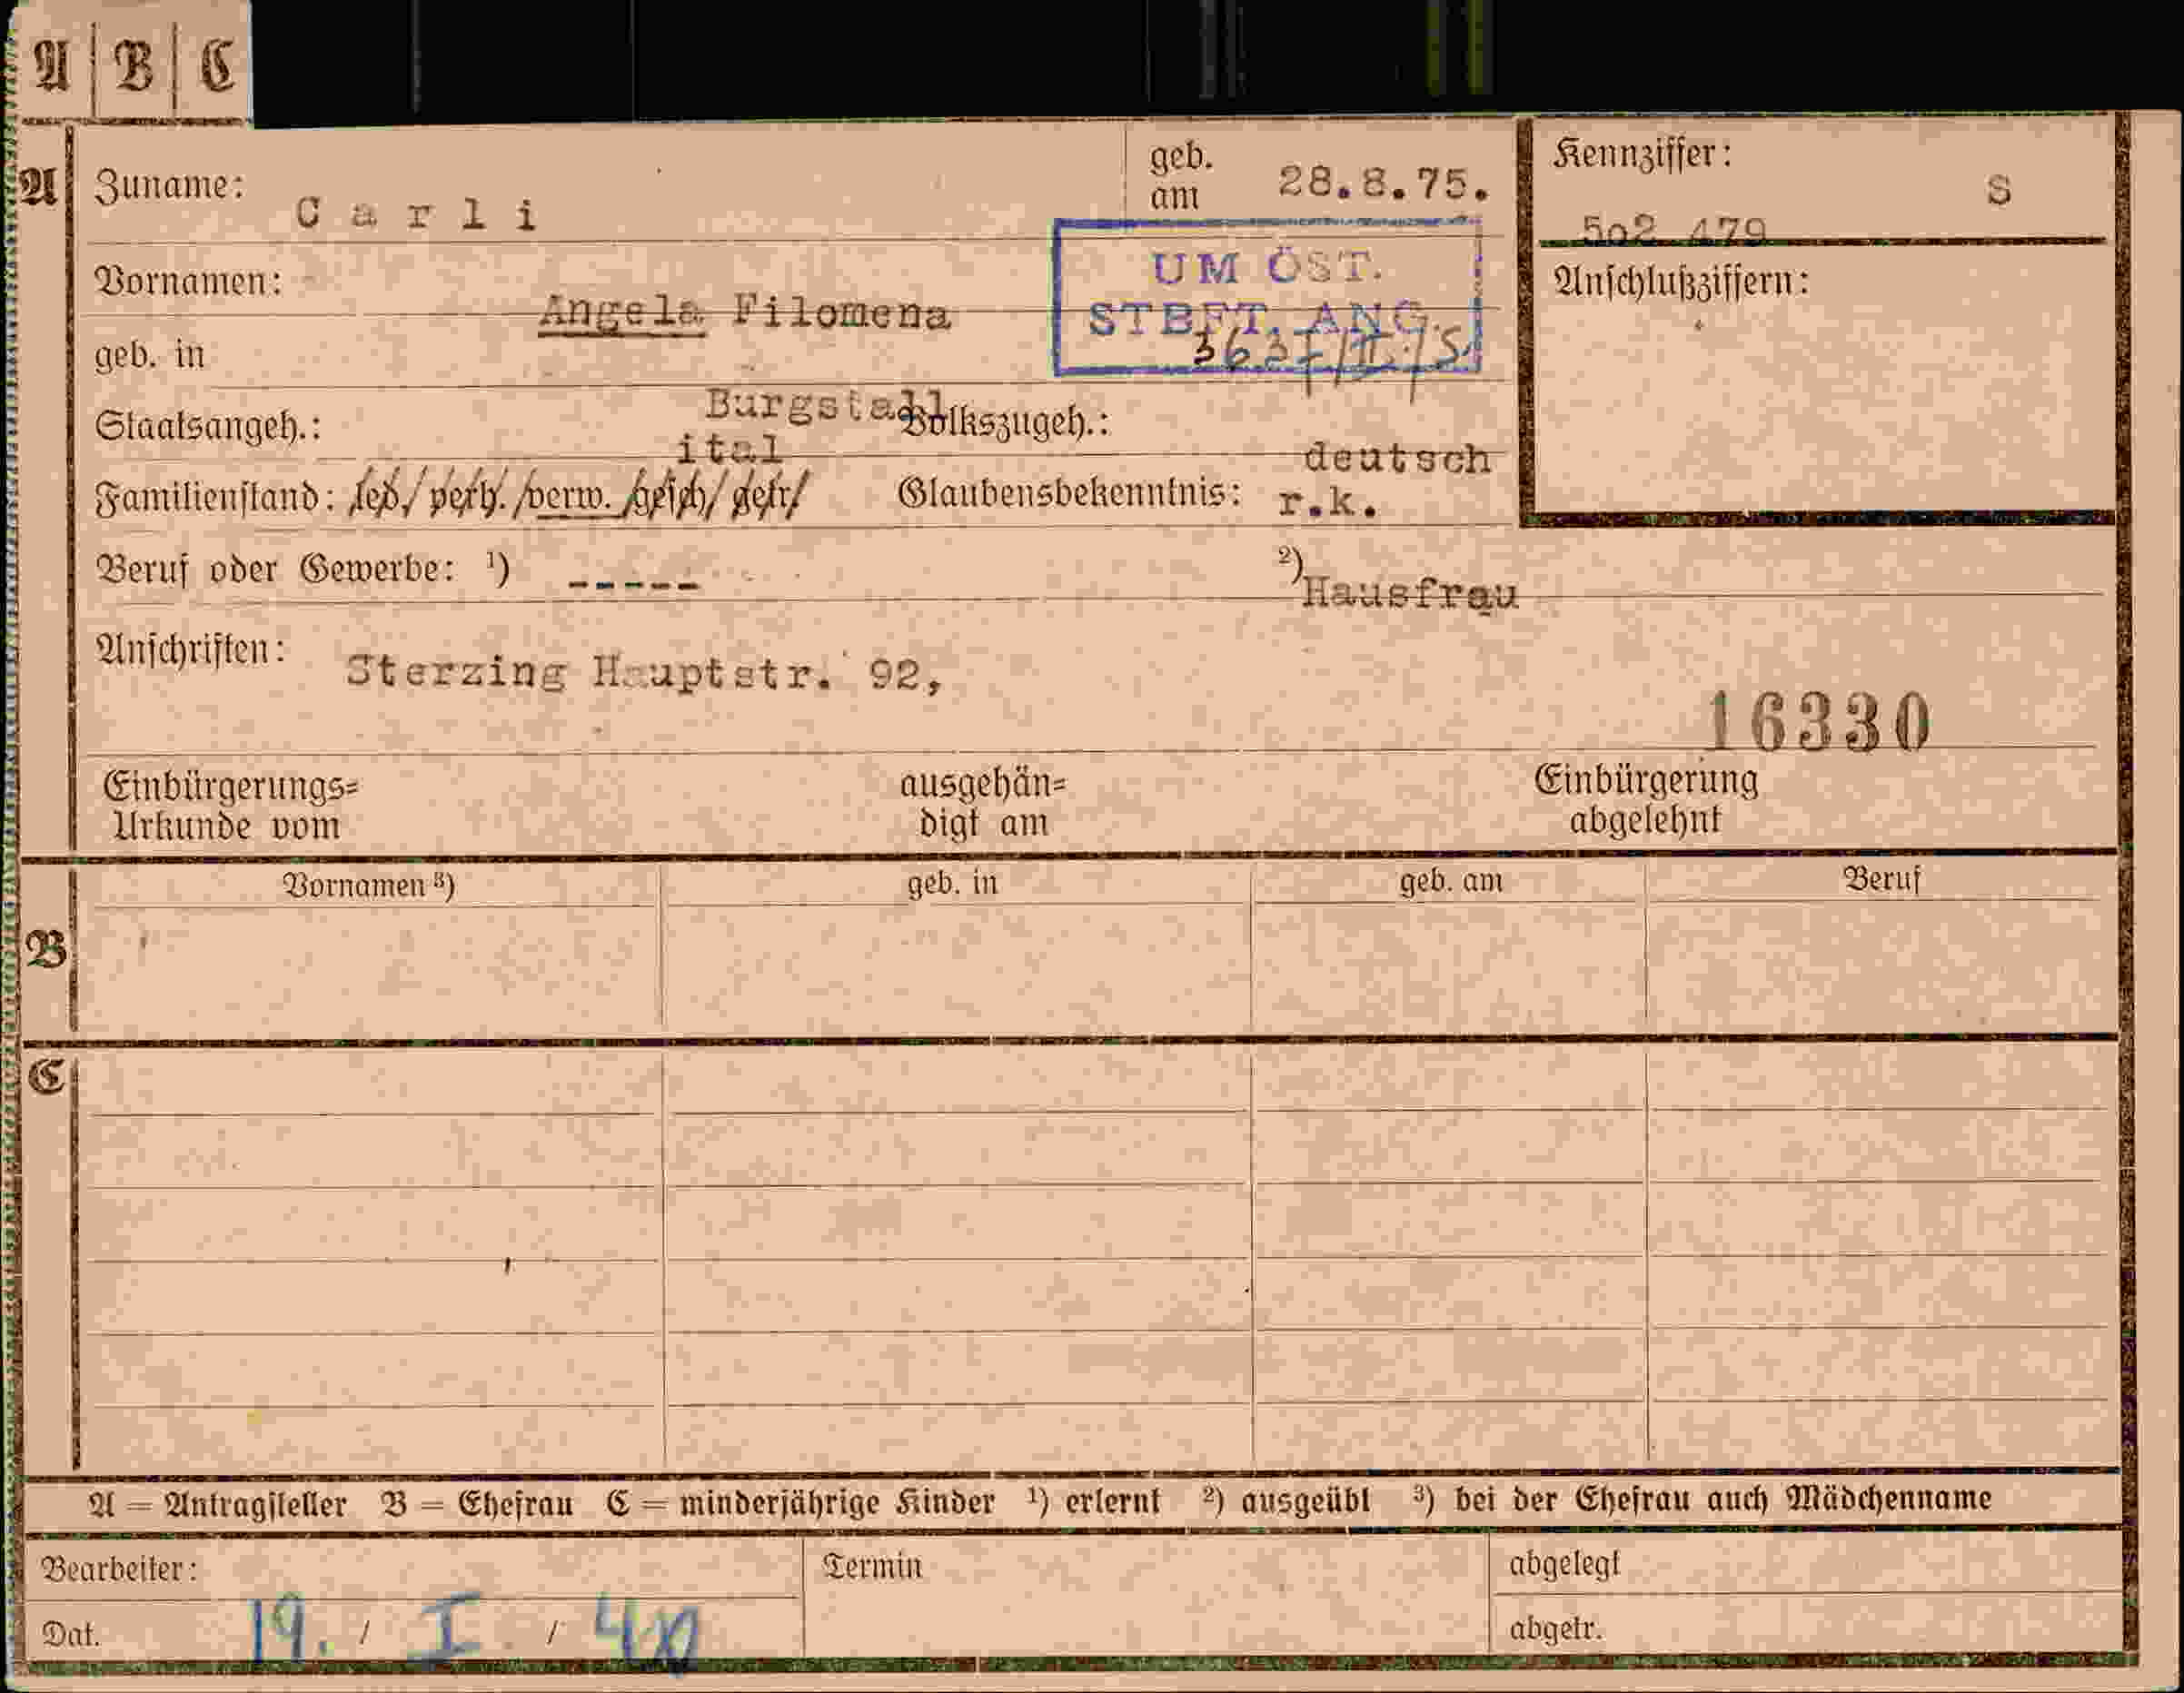 A | B | C
A
Zuname: Carli
geb. am 28.8.75.
Kennziffer: S
5o2 479
Vornamen: Angela Filomena
UM ÖST.
STBFT. ANG.
Anschlußziffern:
geb. in Burgstall
Staatsangeh.: ital
Volkszugeh.: deutsch
Familienstand: led./verh./verw./gesch/getr/
Glaubensbekenntnis: r.k.
Beruf oder Gewerbe: ¹) -----
²) Hausfrau
Anschriften: Sterzing Hauptstr. 92,
16330
Einbürgerungs=
Urkunde vom
ausgehän=
digt am
Einbürgerung
abgelehnt
B
Vornamen ³) geb. in geb. am Beruf
C
A = Antragsteller B = Ehefrau C = minderjährige Kinder ¹) erlernt ²) ausgeübt ³) bei der Ehefrau auch Mädchenname
Bearbeiter:
Termin
abgelegt
Dat. 19. / I / 40
abgetr.